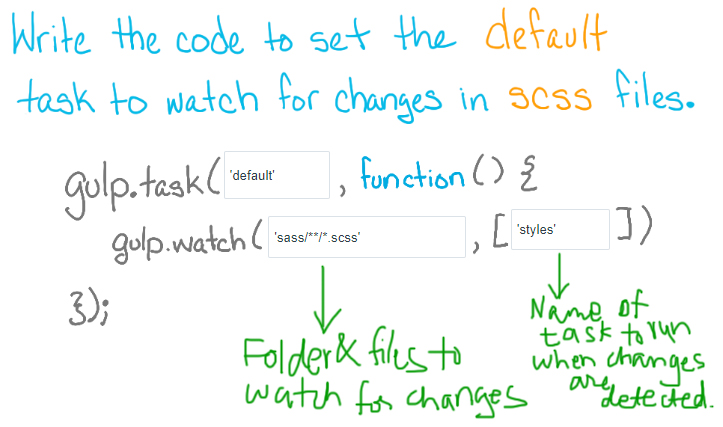 Write the code to set the default
task to watch for changes in scss files.
gulp.task( 'default' , function() {
gulp.watch( 'sass/**/*.scss' , [ 'styles' ])
});
Folder & files to
watch for changes
Name of
task to run
when changes
are detected.